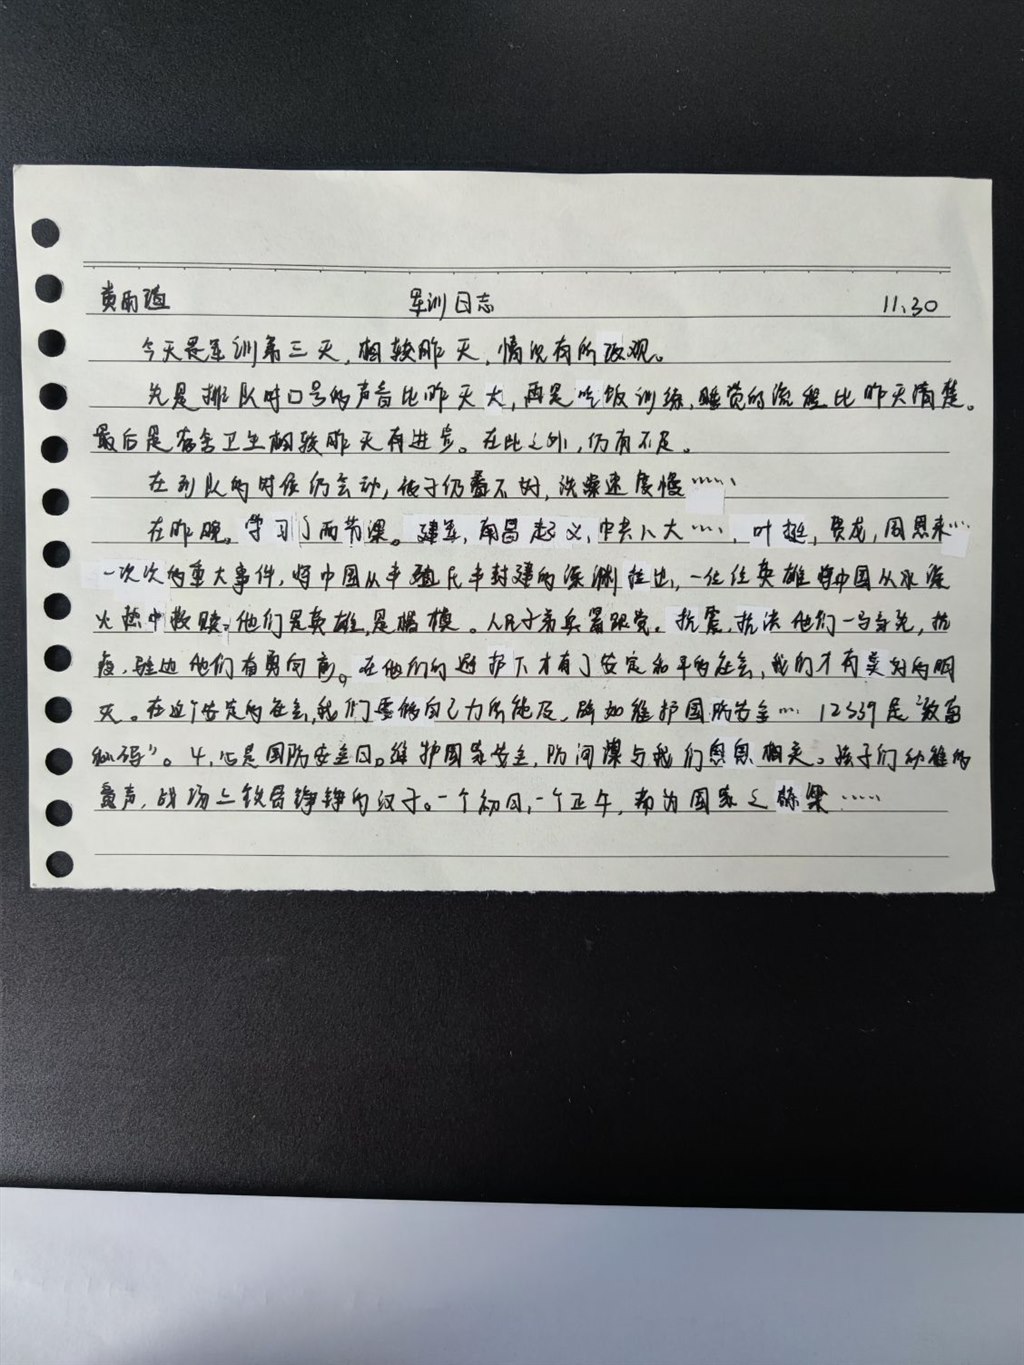 黄雨蕴 军训日志 11.30
今天是军训第三天,相较昨天,情况有所改观。
先是排队时口号的声音比昨天大,再是吃饭训练,睡觉的流程比昨天清楚。
最后是宿舍卫生相较昨天有进步。在此之外,仍有不足。
在列队的时候仍会动,被子仍叠不好,洗澡速度慢……
在昨晚。学习了两节课。建军,南昌起义,中共八大……,叶挺,贺龙,周恩来…
一次次的重大事件,将中国从半殖民半封建的深渊拉出,一位位英雄将中国从水深
火热中救赎,他们是英雄,是楷模。人民子弟兵署跟党。抗震,抗洪他们一马当先,抗
疫,驻边他们奋勇向前。在他们的避护下才有了安定和平的社会,我们才有美好的明
天。在这个安定的社会,我们要做自己力所能及,譬如维护国防安全… 12339是“致富
秘码”。4.15是国防安全日。维护国家安全,防间谍与我们息息相关。孩子们幼稚的
童声,战场上铁骨铮铮的汉子。一个初日,一个正午,都为国家之栋梁……